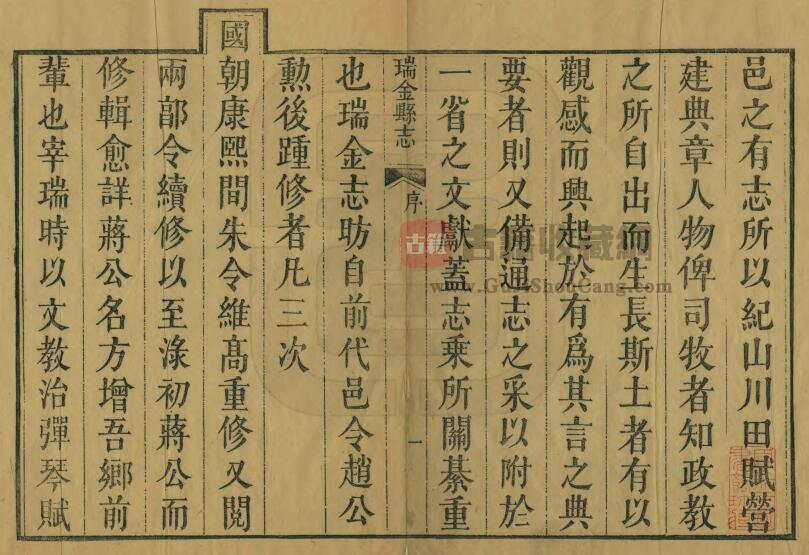 邑之有志所以紀山川田賦營
建典章人物俾司牧者知政教
之所自出而生長斯土者有以
觀感而興起於有爲其言之典
要者則又備通志之采以附於
一省之文獻蓋志乘所關綦重
瑞金縣志 序 一
也瑞金志昉自前代邑令趙公
勲後踵修者凡三次
國
朝康熙間朱令維髙重修又閲
兩郜令續修以至淥初蔣公而
修輯愈詳蔣公名方增吾鄉前
輩也宰瑞時以文教治彈琴賦
古籍
古籍收藏網
www.GujiShouCang.com